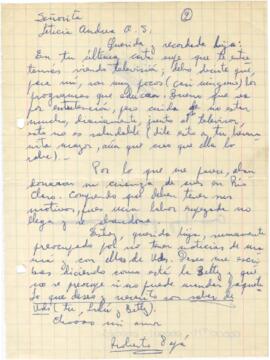 Señorita
Leticia Andrea A. S. (2)
Querida y recordada hija:
En tu última carta supe que te entre-
tenías viendo televisión; debo decirte que,
para mí, son muy pocos (casi ninguno) los
programas que educan. Bueno que sea
por entretención, pero cuida de no estar
mucho, diariamente, junto al televisor,
esto no es saludable (dile esto a tu herma-
nita mayor, aún que creo que ella lo
sabe).-
Por lo que me parece, aban-
donaron su crianza de en Río
Claro. Comprendo que deben tener sus
motivos, pues una labor empezada no
llega y se abandona.
Estoy, querida hija, nuevamente
preocupado por no tener noticias de una
ni con ellas de Uds. Deseo me escri-
bas diciendo como está la Betty y qué
no se preocupe si no puede mandar paquete
lo que deseo y necesito son saber de
Uds. (tu, Lily y Betty).
Chaooo mi amor
Roberto Papá